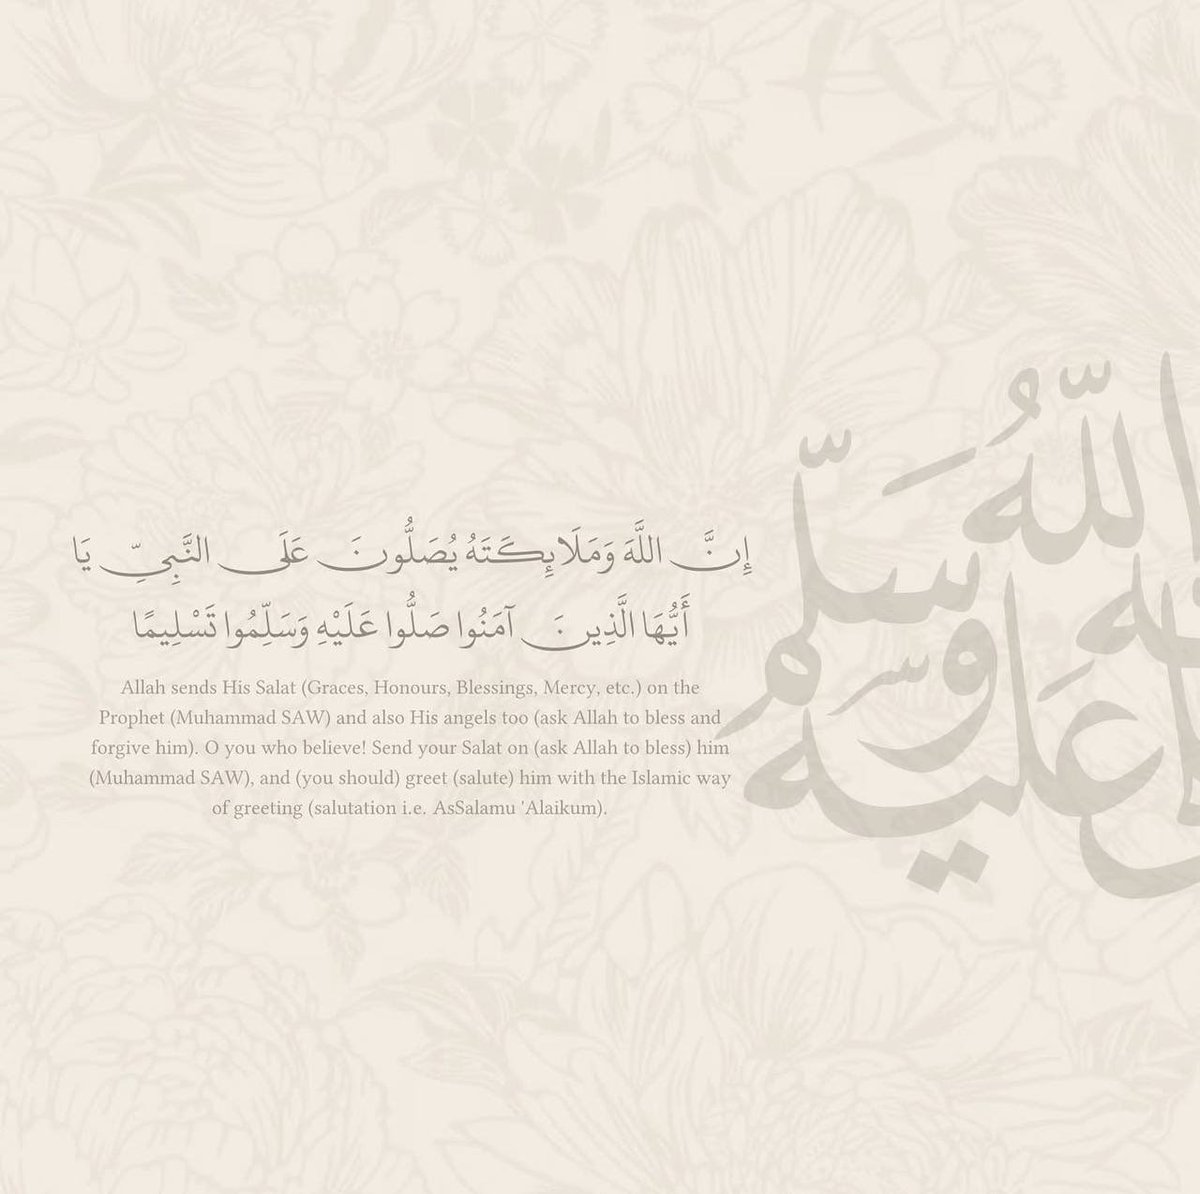 إِنَّ اللَّهَ وَمَلَائِكَتَهُ يُصَلُّونَ عَلَى النَّبِيِّ يَا
أَيُّهَا الَّذِينَ آمَنُوا صَلُّوا عَلَيْهِ وَسَلِّمُوا تَسْلِيمًا
Allah sends His Salat (Graces, Honours, Blessings, Mercy, etc.) on the
Prophet (Muhammad SAW) and also His angels too (ask Allah to bless and
forgive him). O you who believe! Send your Salat on (ask Allah to bless) him
(Muhammad SAW), and (you should) greet (salute) him with the Islamic way
of greeting (salutation i.e. AsSalamu 'Alaikum).
الله
عليه
وسلم